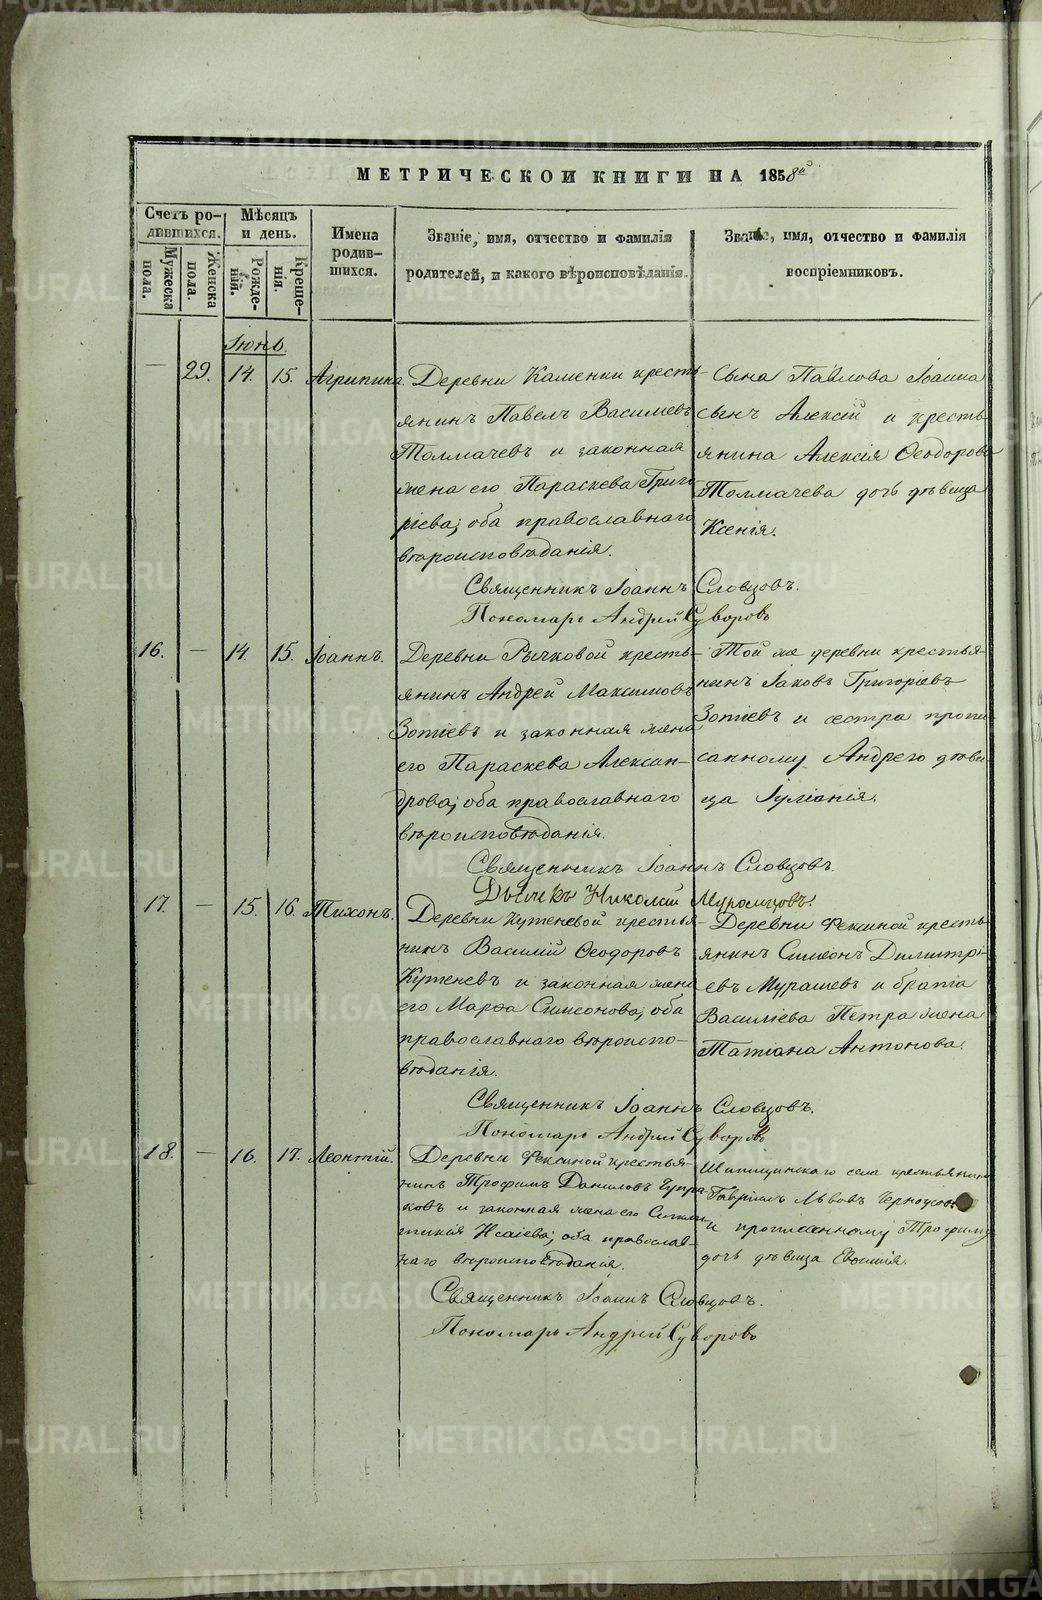 МЕТРИЧЕСКОЙ КНИГИ НА 1858й
Счетъ ро-
дившихся.
Мужеска пола.
Женска пола.
Мѣсяцъ
и день.
Рожде-
нія.
Креще-
нія.
Имена
родив-
шихся.
Званіе, имя, отчество и фамилія
родителей, и какого вѣроисповѣданія.
Званіе, имя, отчество и фамилія
воспріемниковъ.
Іюнь.
— 29. 14. 15. Агрипина.
Деревни Каменки кресть-
янинъ Павелъ Васильевъ
Толмачевъ и законная
жена его Параскева Григо
ріева; оба православнаго
вѣроисповѣданія.
Сына Павлова Іоанна
сынъ Алексій и кресть-
янина Алексія Ѳеодорова
Толмачева дочь дѣвица
Ксенія.
Священникъ Іоаннъ Словцовъ.
Пономарь Андрей Суворовъ
16. — 14. 15. Іоаннъ.
Деревни Рычковой кресть-
янинъ Андрей Максимовъ
Зотіевъ и законная жена
его Параскева Алексан-
дрова; оба православнаго
вѣроисповѣданія.
Той же деревни крестья-
нинъ Іаковъ Григоріевъ
Зотіевъ и сестра пропи-
санному Андрею дѣви-
ца Іуліанія.
Священникъ Іоаннъ Словцовъ.
Дьячекъ Николай Муромцовъ.
17. — 15. 16. Тихонъ.
Деревни Кутеневой крестья-
нинъ Василій Ѳеодоровъ
Кутеневъ и законная жена
его Марѳа Симеонова, оба
православнаго вѣроиспо-
вѣданія.
Деревни Фексиной кресть-
янинъ Симеонъ Димитрі-
евъ Мурашевъ и брата
Василіева Петра жена
Татіана Антонова.
Священникъ Іоаннъ Словцовъ.
Пономарь Андрей Суворовъ
18. — 16. 17. Леонтій.
Деревни Фексиной крестья-
нинъ Трофимъ Даниловъ Чупра-
ковъ и законная жена его Синкли-
тикія Исаіева; оба православ-
наго вѣроисповѣданія.
Шипицинскаго села крестьянинъ
Гавріилъ Львовъ
и прописанному Трофиму
дочь дѣвица Евѳимія.
Священникъ Іоаннъ Словцовъ.
Пономарь Андрей Суворовъ
METRIKI.GASO-URAL.RU